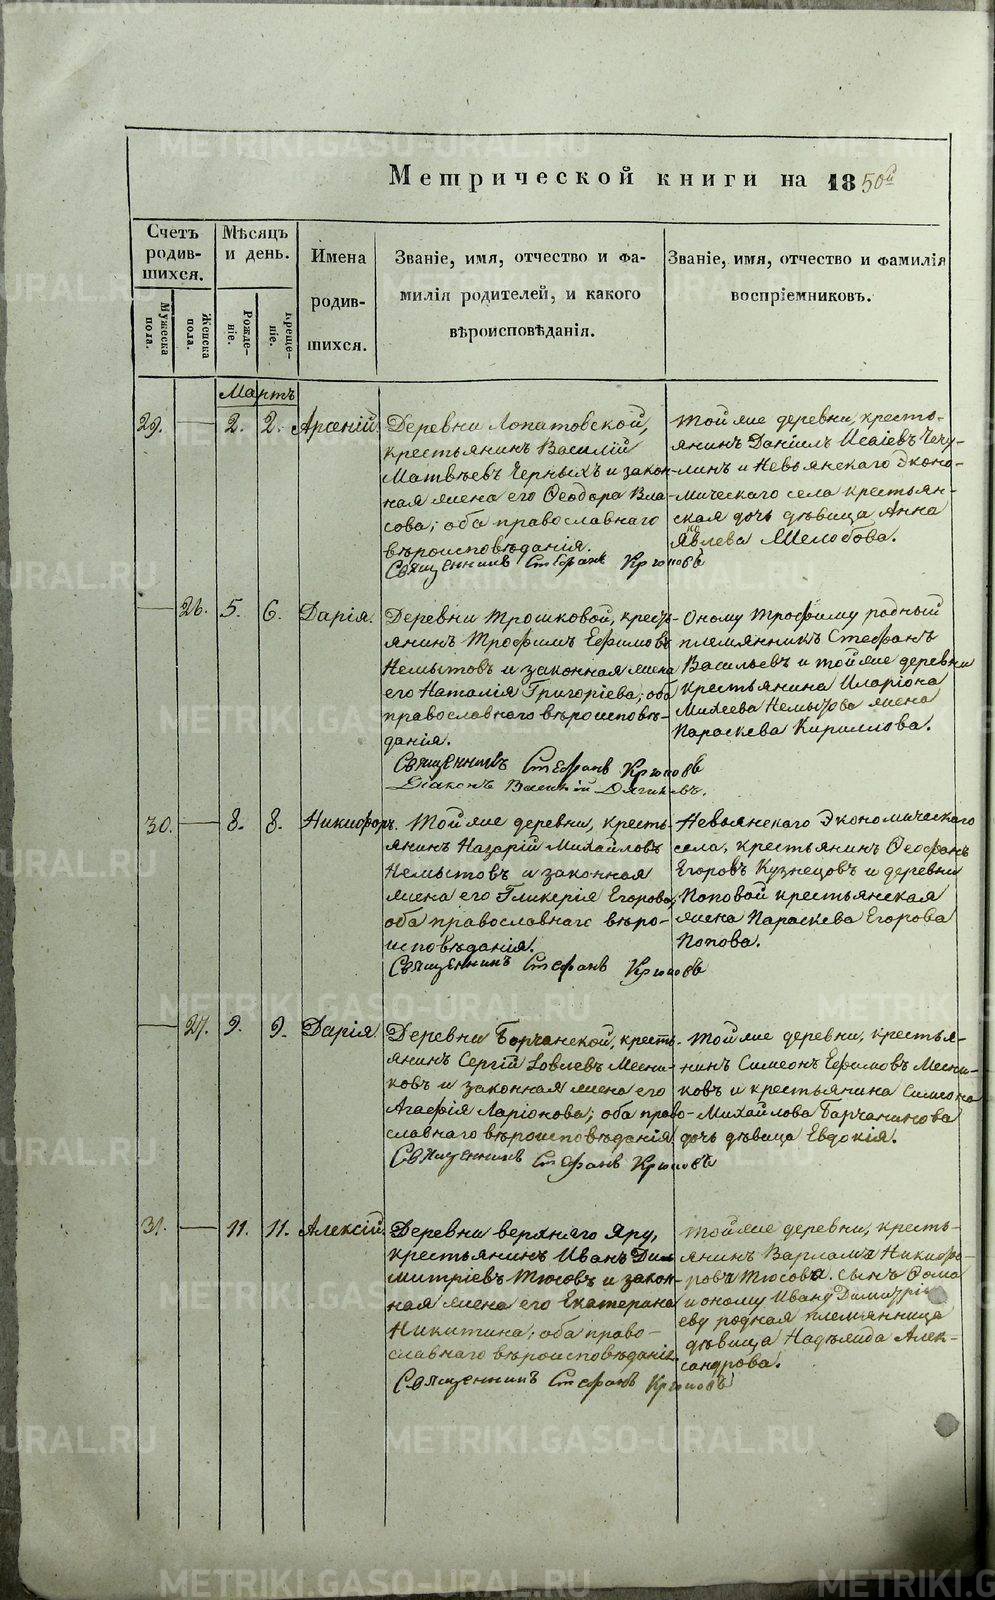 Метрической книги на 1850й
Счетъ родив-шихся.
Мѣсяцъ и день.
Имена родив-шихся.
Званіе, имя, отчество и фа-
милія родителей, и какого
вѣроисповѣданія.
Званіе, имя, отчество и фамилія
воспріемниковъ.
Мужеска пола.
Женска пола.
Рожде-ніе.
Креще-ніе.
Мартъ
29. 2. 2. Арсеній
Деревни Лопатовской,
крестьянинъ Василій
Матвѣевъ Черныхъ и закон-
ная жена его Ѳеодора Вла-
сова; оба православнаго
вѣроисповѣданія.
Священникъ Стефанъ Крюковъ
Той же деревни, кресть-
янинъ Даніилъ Исаіевъ Чечу-
линъ и Невьянскаго Эконо-
мическаго села крестьян-
ская дочь дѣвица Анна
Яковлева Шелобова.
26. 5. 6. Дарія.
Деревни Трошковой, кресть-
янинъ Трофимъ Ефимовъ
Немытовъ и законная жена
его Наталія Григоріева; оба
православнаго вѣроисповѣ-
данія.
Священникъ Стефанъ Крюковъ
Діаконъ Василій
Оному Трофиму родный
племянникъ Стефанъ
Васильевъ и той же деревни
крестьянина Иларіона
Михеева Немытова жена
Параскева Кириллова.
30. 8. 8. Никифоръ.
Той же деревни, кресть-
янинъ Назарій Михайловъ
Немытовъ и законная
жена его Гликерія Егорова,
оба православнаго вѣро-
исповѣданія.
Священникъ Стефанъ Крюковъ
Невьянскаго Экономическаго
села, крестьянинъ Ѳеофанъ
Егоровъ Кузнецовъ и деревни
Поповой крестьянская
жена Параскева Егорова
Попова.
27. 9. 9. Дарія
Деревни Борчанской, кресть-
янинъ Сергій Іовлевъ Месни-
ковъ и законная жена его
Агафія Ларіонова; оба право-
славнаго вѣроисповѣданія
Священникъ Стефанъ Крюковъ
Той же деревни, крестья-
нинъ Симеонъ Ефимовъ Месни-
ковъ и крестьянина Симеона
Михайлова Барчанинова
дочь дѣвица Евдокія.
31. 11. 11. Алексій
Деревни верхняго Яру,
крестьянинъ Иванъ Ди-
митріевъ Тюсовъ и закон-
ная жена его Екатерина
Никитина; оба право-
славнаго вѣроисповѣданія.
Священникъ Стефанъ Крюковъ
Той же деревни, кресть-
янинъ Варламъ Никифо-
ровъ Тюсова. сынъ Ѳома
и оному Ивану Димитрі-
еву родная племянница
дѣвица Надежда Алек-
сандрова.
METRIKI.GASO-URAL.RU